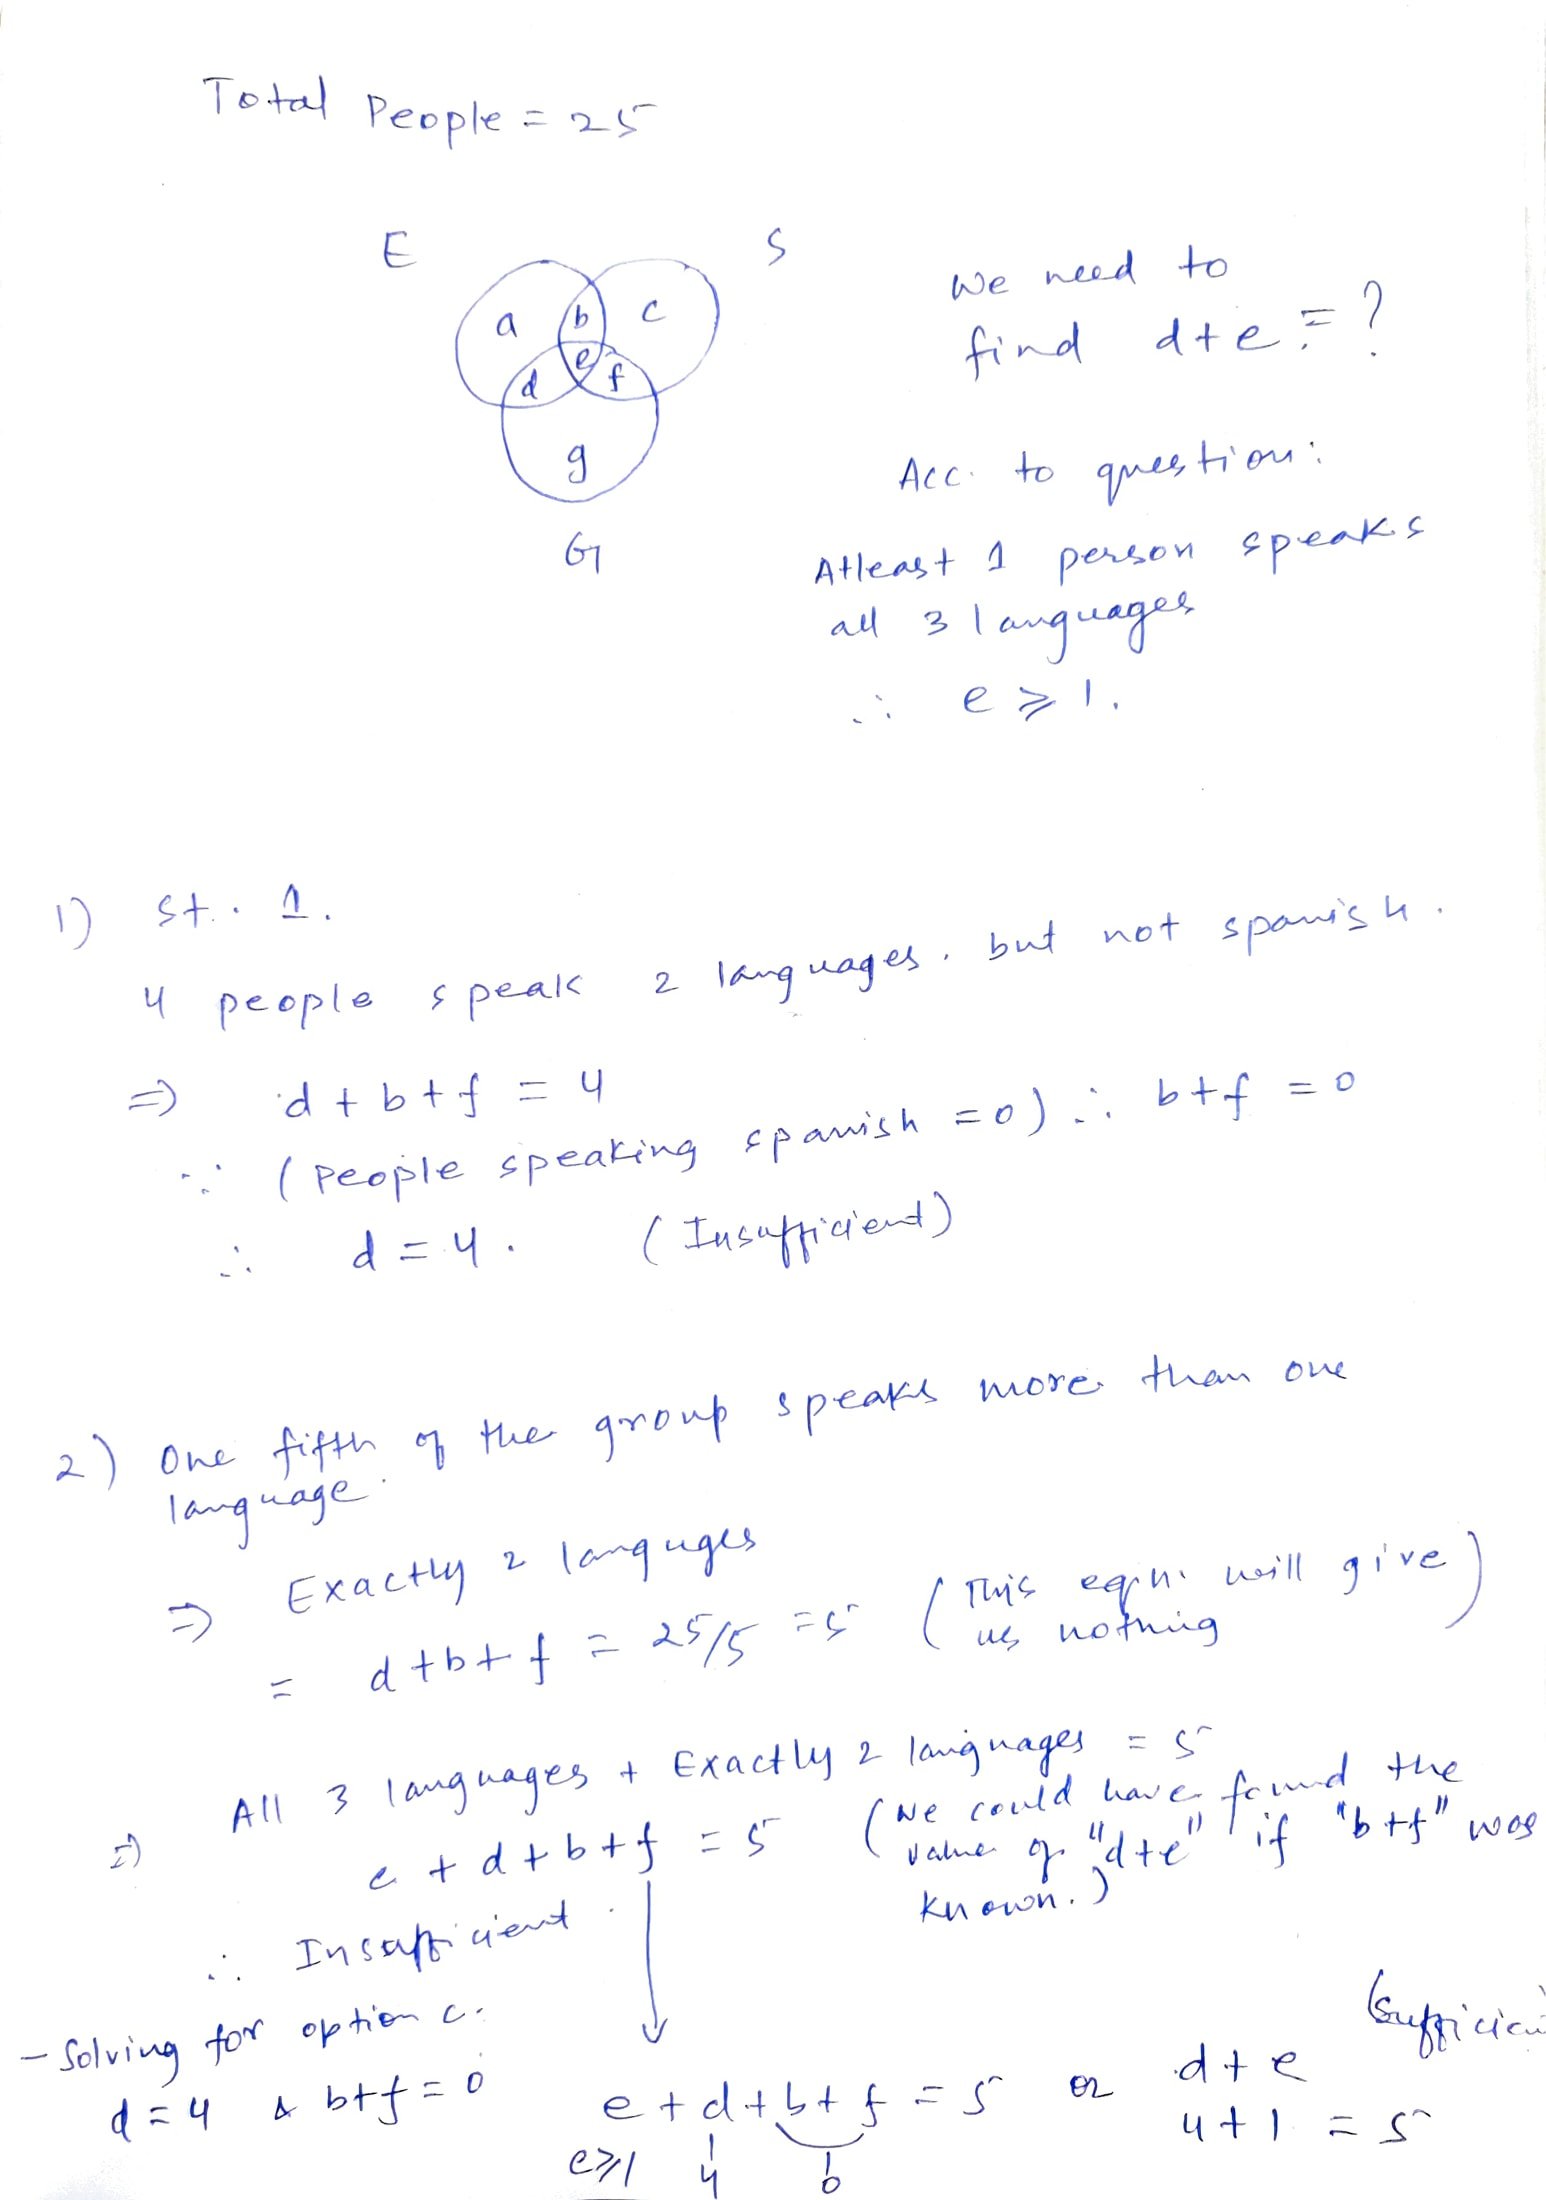 Total People = 25
E
S
a
b
c
d
e
f
g
G
We need to
find d+e = ?
Acc. to question:
Atleast 1 person speaks
all 3 languages
∴ e ⩾ 1.
1) St. 1.
4 people speak 2 languages, but not spanish.
⇒ d + b + f = 4
∵ (People speaking spanish = 0) ∴ b+f = 0
∴ d = 4. (Insufficient)
2) One fifth of the group speaks more than one
language.
⇒ Exactly 2 languges
= d + b + f = 25/5 = 5 (This eqn. will give
us nothing)
⇒ All 3 languages + Exactly 2 languages = 5
e + d + b + f = 5 (We could have found the
value of "d+e" if "b+f" was
known.)
∴ Insufficient
- Solving for option c.
d = 4 & b+f = 0
e + d + b + f = 5 or d + e
e⩾1 4 0
4 + 1 = 5